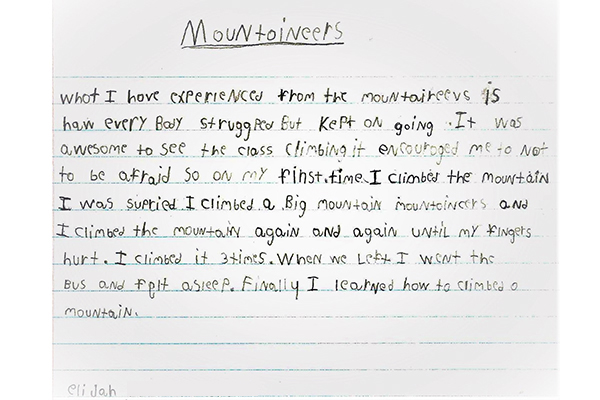 Mountoineers
whot I hove experienced from the mountaireevs is
haw every Body struggPed But kept on going . It was
awesome to see the class climbing it encouraged me to Not
to be afraid so on my finst.time I climbed the mountain
I was supried I climbed a Big mountain mountoincers and
I climbed the mountain again and again until my fingers
hurt. I climbed it 3times. When we Left I went the
Bus and fplt asleep. Finally I learned how to climbed o
mountain.
elijah